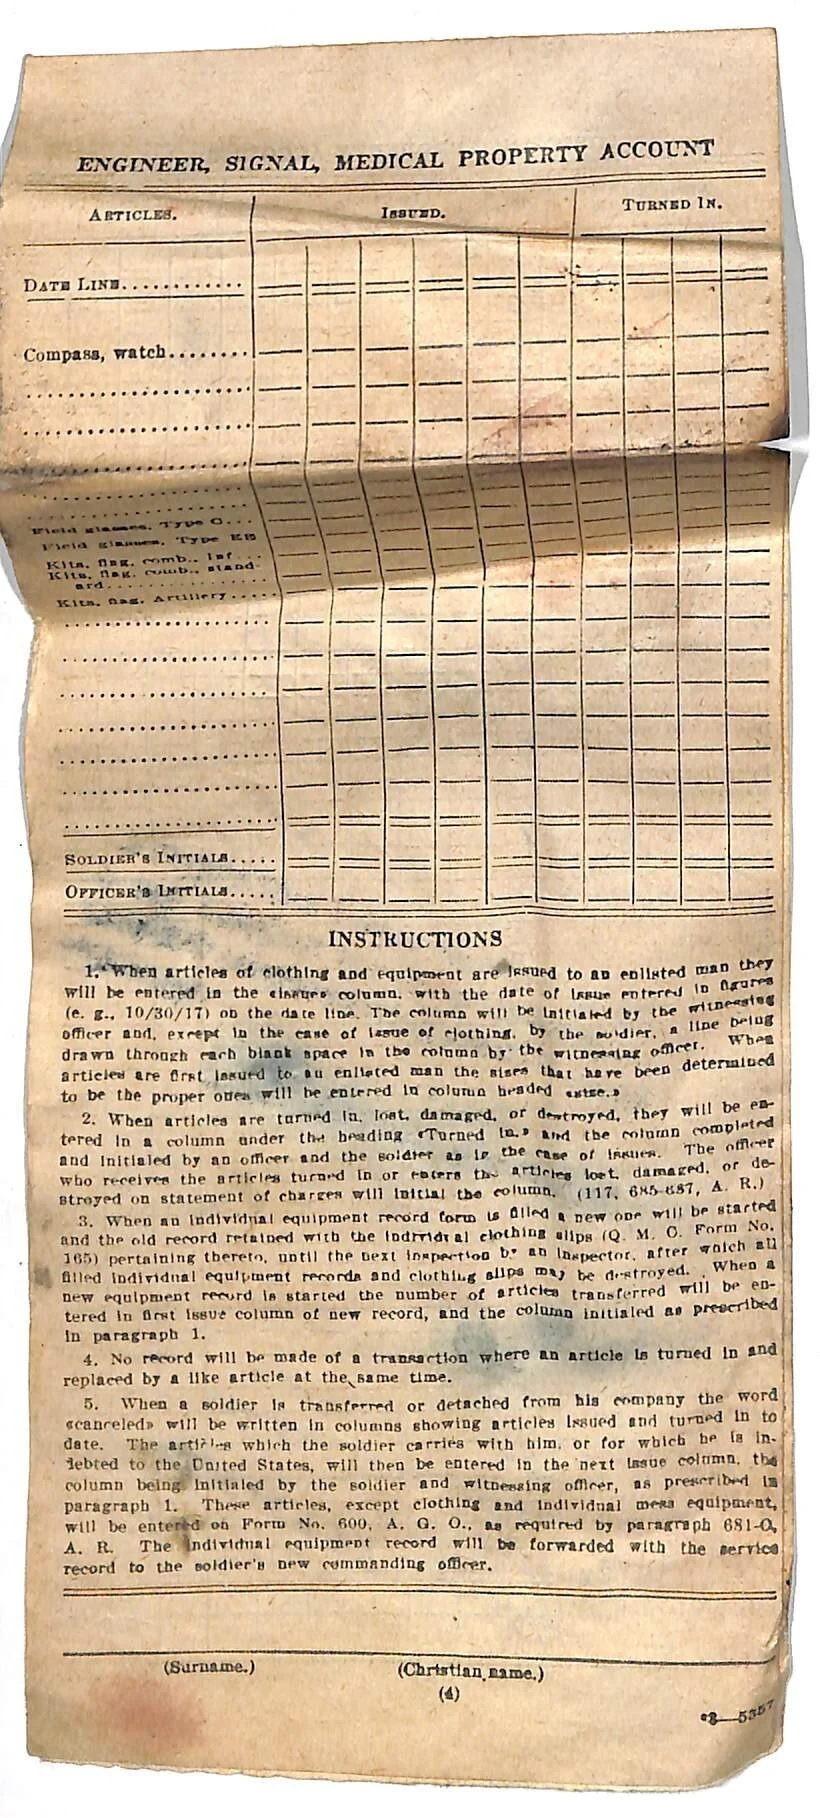 ENGINEER, SIGNAL, MEDICAL PROPERTY ACCOUNT
ARTICLES. ISSUED. TURNED IN.
DATE LINE............
Compass, watch........
Field glasses, Type C...
Field glasses, Type EE
Kits, flag, comb., Inf....
Kits, flag, comb., stand-
ard....................
Kits, flag, Artillery.....
SOLDIER'S INITIALS.....
OFFICER'S INITIALS.....
INSTRUCTIONS
1. When articles of clothing and equipment are issued to an enlisted man they
will be entered in the «issue» column, with the date of issue entered in figures
(e. g., 10/30/17) on the date line. The column will be initialed by the witnessing
officer and, except in the case of issue of clothing, by the soldier, a line being
drawn through each blank space in the column by the witnessing officer. When
articles are first issued to an enlisted man the sizes that have been determined
to be the proper ones will be entered in column headed «size.»
2. When articles are turned in, lost, damaged, or destroyed, they will be en-
tered in a column under the heading «Turned in.» and the column completed
and initialed by an officer and the soldier as in the case of issues. The officer
who receives the articles turned in or enters the articles lost, damaged, or de-
stroyed on statement of charges will initial the column. (117, 685-687, A. R.)
3. When an individual equipment record form is filled a new one will be started
and the old record retained with the individual clothing slips (Q. M. C. Form No.
165) pertaining thereto, until the next inspection by an inspector, after which all
filled individual equipment records and clothing slips may be destroyed. When a
new equipment record is started the number of articles transferred will be en-
tered in first issue column of new record, and the column initialed as prescribed
in paragraph 1.
4. No record will be made of a transaction where an article is turned in and
replaced by a like article at the same time.
5. When a soldier is transferred or detached from his company the word
«canceled» will be written in columns showing articles issued and turned in to
date. The articles which the soldier carries with him, or for which he is in-
debted to the United States, will then be entered in the next issue column, the
column being initialed by the soldier and witnessing officer, as prescribed in
paragraph 1. These articles, except clothing and individual mess equipment,
will be entered on Form No. 600, A. G. O., as required by paragraph 681-C,
A. R. The individual equipment record will be forwarded with the service
record to the soldier's new commanding officer.
(Surname.) (Christian name.)
(4)
3—5357